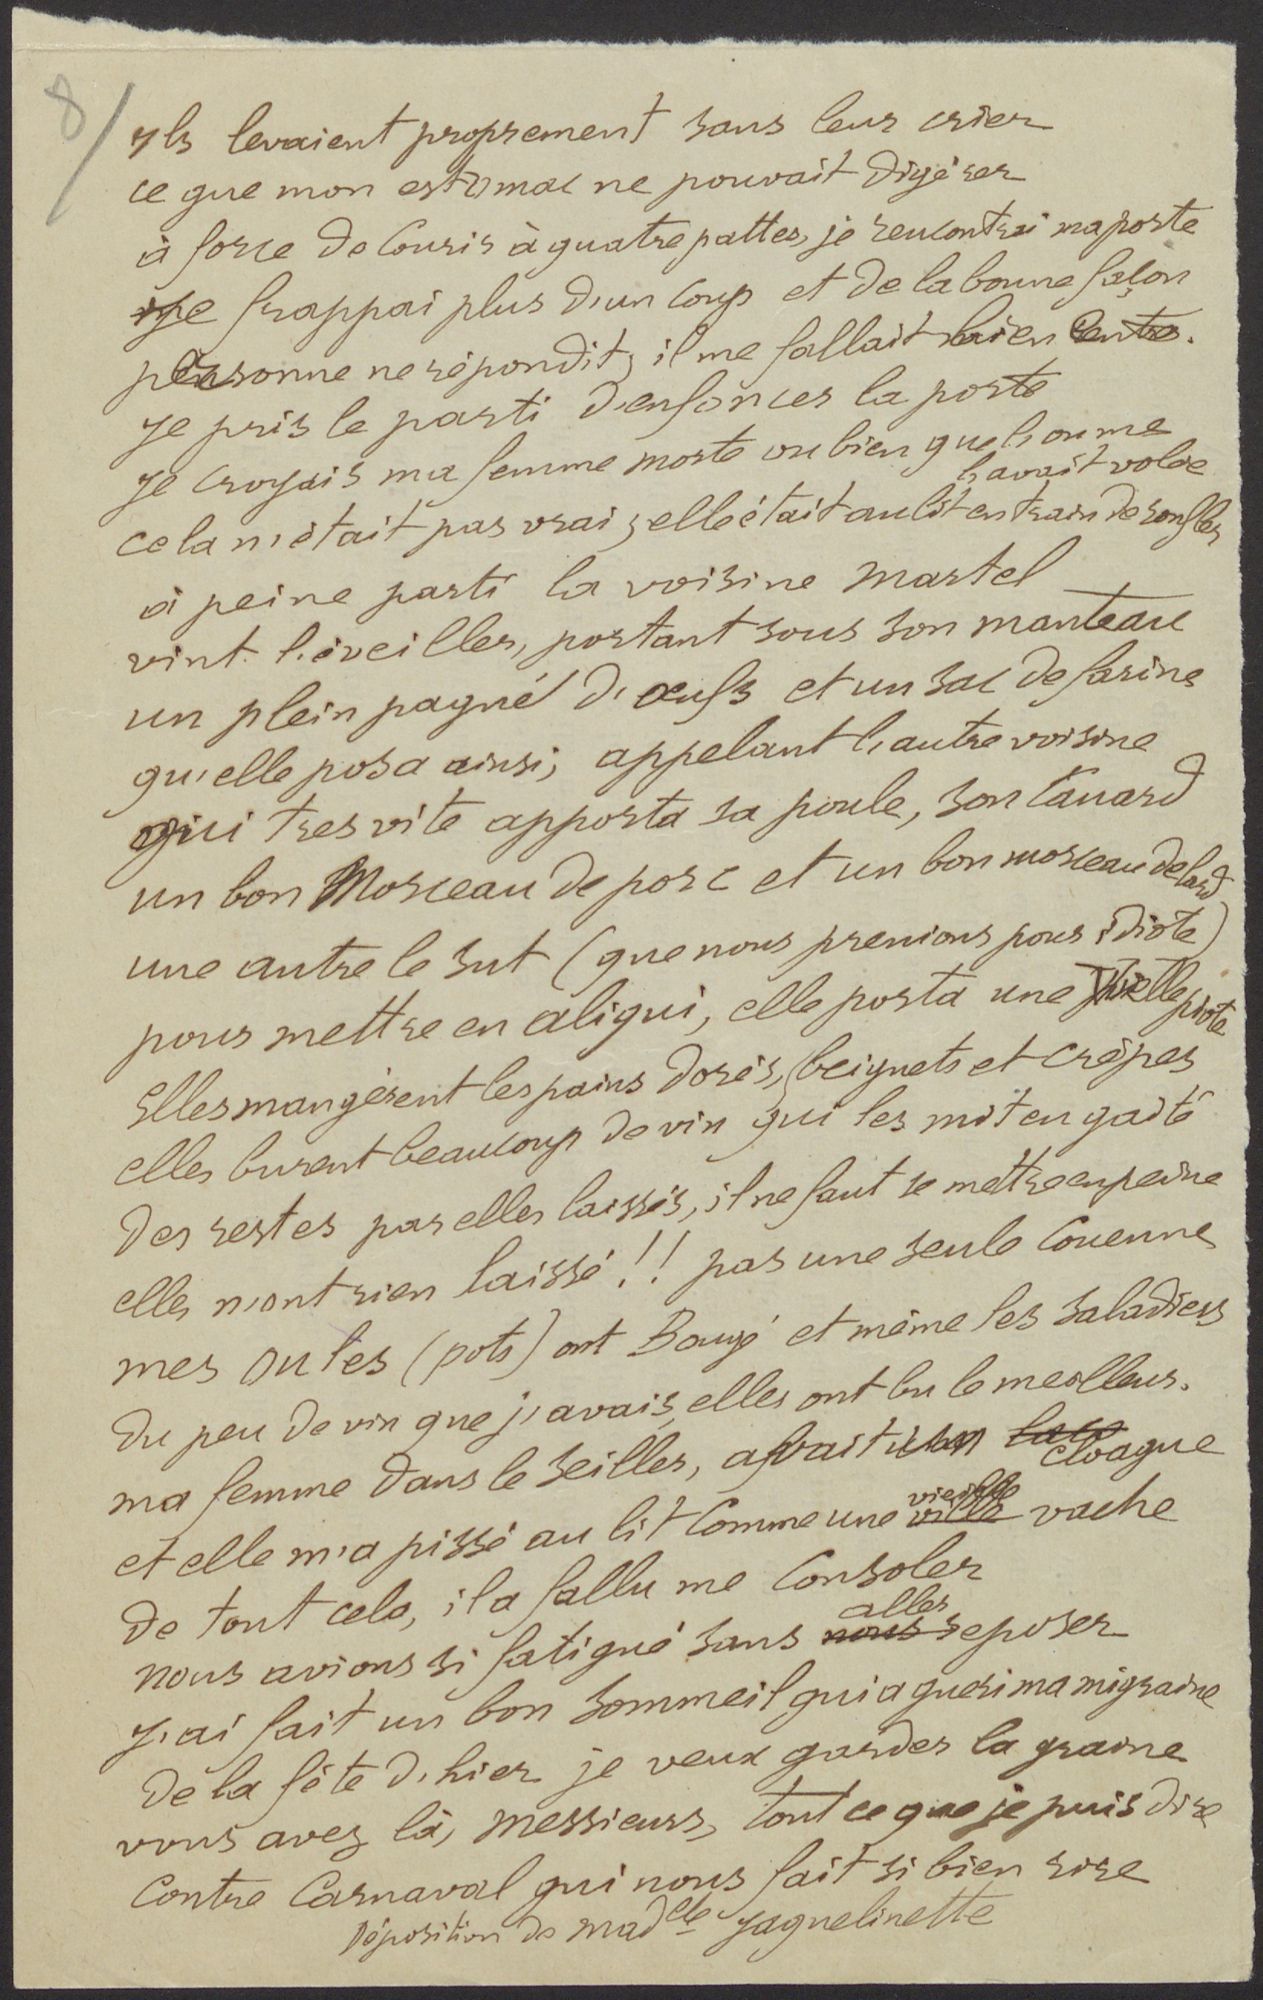 8/
yls levaient proprement sans leur crier
ce que mon estomac ne pouvait digérer
à force de Courir à quatre pattes, je rencontrai ma porte
je frappai plus d'un coup et de la bonne façon
personne ne répondit, il me fallait bien entrer.
je pris le parti d'enfoncer la porte
je croyais ma femme morte ou bien que l'on me
l'avait volée
cela n'était pas vrai, elle était au lit en train de ronfler
à peine parti la voisine Martel
vint l'éveiller, portant sous son manteau
un plein pagné d'œufs et un sac de farine
qu'elle posa ainsi, appelant l'autre voisine
qui tres vite apporta sa poule, son Canard
un bon Morceau de porc et un bon morceau de lard
une autre le sut (que nous prenions pour idiote)
pour mettre en aligui, elle porta une vielle piote
Elles mangèrent les pains dorés, beignets et crêpes
elles burent beaucoup de vin qui les mit en gaité
des restes par elles laissés, il ne faut se mettre en peine
elles n'ont rien laissé!! pas une seule Couenne
mes oules (pots) ont Bougé et même les saladiers
du peu de vin que j'avais, elles ont bu le meilleur.
ma femme dans le seiller, avait un cloaque
et elle m'a pissé au lit Comme une ville vieille vache
de tout cela, il a fallu me Consoler
nous avions si fatigué sans nous aller reposer
j'ai fait un bon sommeil qui a gueri ma migraine
de la fête d'hier je veux garder la graine
vous avez là, Messieurs, tout ce que je puis dire
Contre Carnaval qui nous fait si bien rire
Déposition de Madelle Jaquelinette